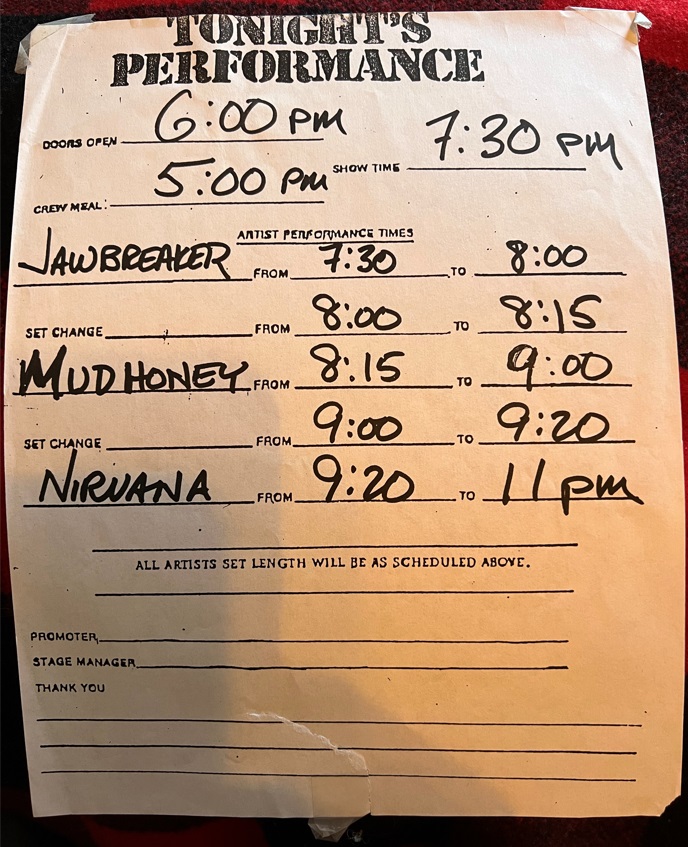 TONIGHT'S
PERFORMANCE
DOORS OPEN 6:00 PM
SHOW TIME 7:30 PM
CREW MEAL: 5:00 PM
ARTIST PERFORMANCE TIMES
JAWBREAKER FROM 7:30 TO 8:00
SET CHANGE FROM 8:00 TO 8:15
MUDHONEY FROM 8:15 TO 9:00
SET CHANGE FROM 9:00 TO 9:20
NIRVANA FROM 9:20 TO 11 pm
ALL ARTISTS SET LENGTH WILL BE AS SCHEDULED ABOVE.
PROMOTER
STAGE MANAGER
THANK YOU